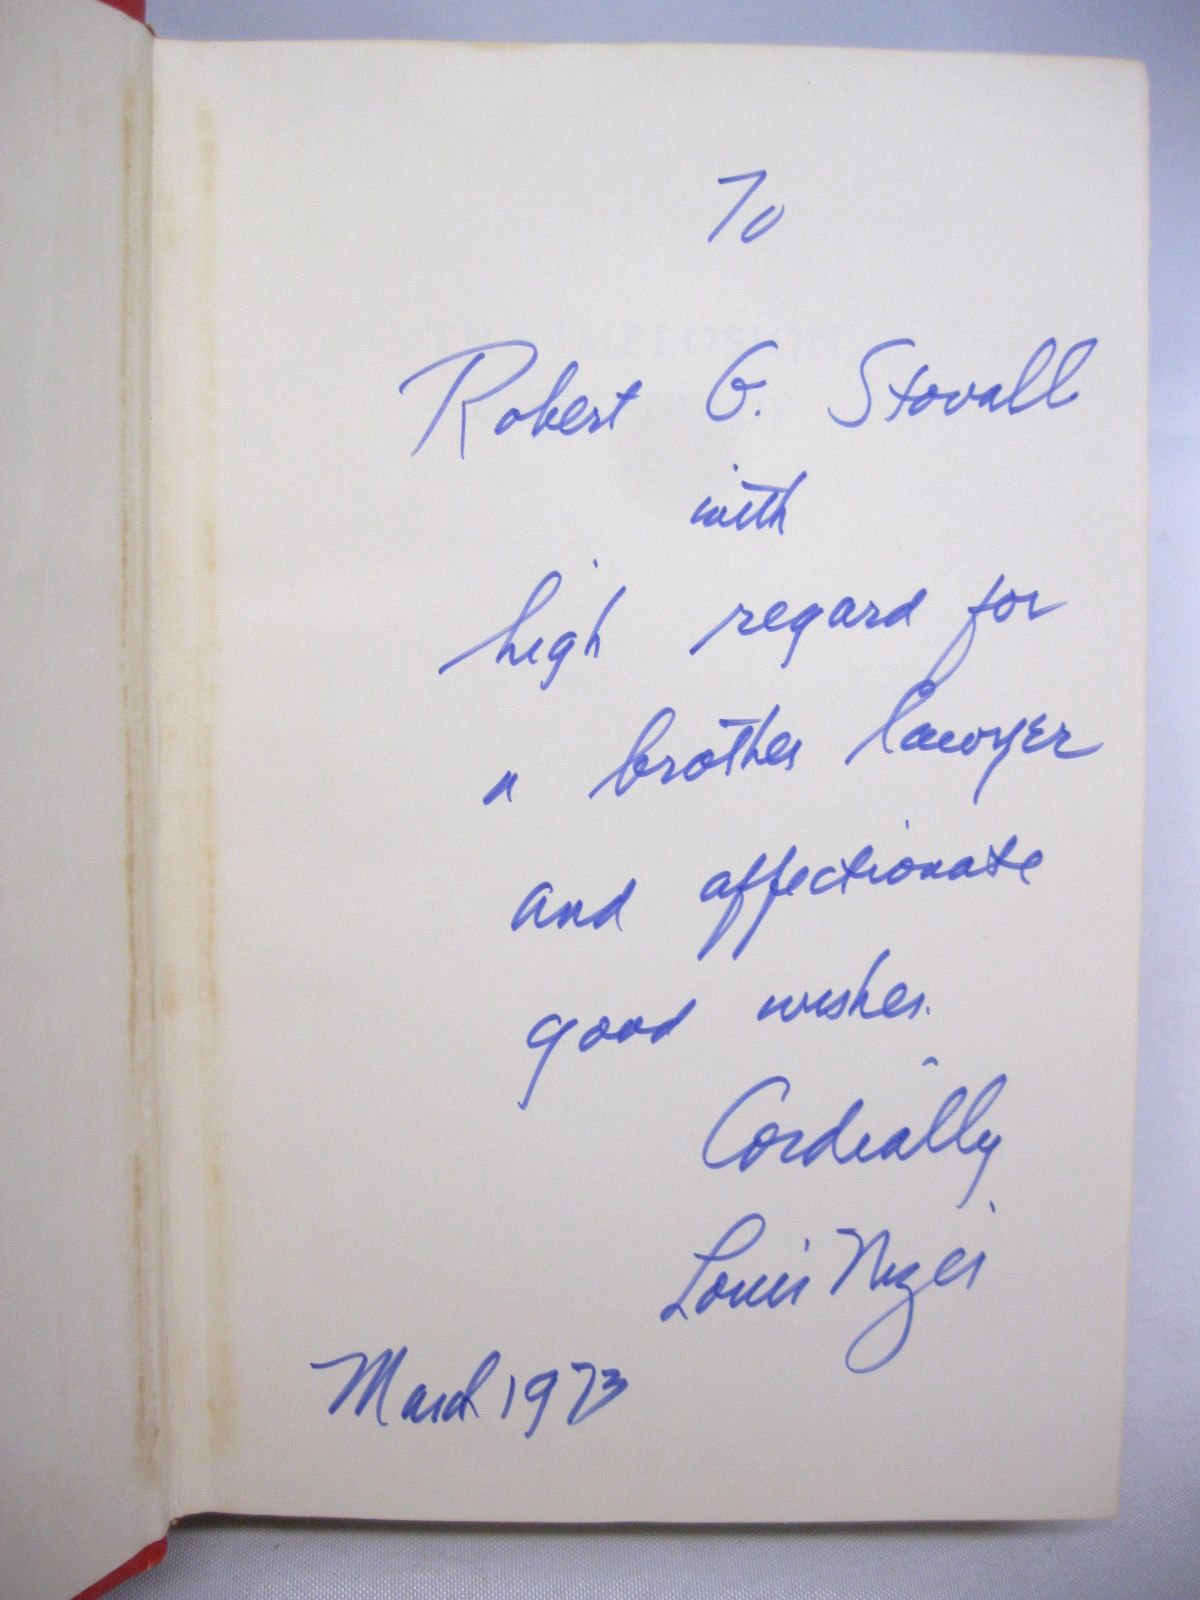 To
Robert G. Stovall
with
high regard for
a brother lawyer
and affectionate
good wishes.
Cordially
Louis Nizer
March 1973